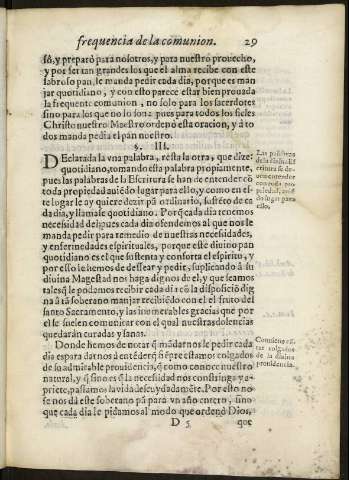 frequencia de la comunion. 29
so, y preparò para nosotros, y para nuestro prouecho,
y por ser tan grandes los que el alma recibe con este
sabroso pan, le manda pedir cada dia, porque es man
jar quotidiano, y con esto parece estar bien prouada
la frequente comunion, no solo para los sacerdotes
sino para los que no lo son: pues para todos los fieles
Christo nuestro Maestro ordenò esta oracion, y à to
dos manda pedir el pan nuestro.
§. III.
DEclarada la vna palabra, resta la otra, que dize:
quotidiano, tomando esta palabra propiamente,
pues las palabras de la Escritura se han de entender cõ
toda propiedad auiẽdo lugar para ello, y como en es-
te lugar le ay quiere dezir pã ordinario, sustẽto de ca
da dia, y llamale quotidiano. Porq̃ cada dia tenemos
necessidad del: pues cada dia ofendemos al que nos le
manda pedir para remedio de nuestras necessidades,
y enfermedades espirituales, porque este diuino pan
quotidiano es el que sustenta y conforta el espiritu, y
por esso le hemos de dessear y pedir, suplicando à su
diuina Magestad nos haga dignos del, y que seamos
tales q̃ le podamos recibir cada dia cõ la disposiciõ dig
na à tã soberano manjar recibiẽdo con el el fruto del
santo Sacramento, y las inumerables gracias que por
el se suelen comunicar con el qual nuestras dolencias
quedaràn curadas y sanas.
Donde hemos de notar q̃ mãdarnos le pedir cada
dia es para darnos à entẽder q̃ siẽpre estamos colgados
de su admirable prouidencia, q̃ como conoce nuestro
natural, y q̃ sino es q̃ la necessidad nos constringa y a-
priete, passamos la vida descuydadamẽte. Por esto no
se nos dà este soberano pã para vn año entero, sino
que cada dia le pidamos al modo que ordenò Dios,
D 5 que
Las palabras
de la diuina Es
critura se de-
uen entender
con toda pro-
piedad, auiẽ
do lugar para
ello.
Conuiene es-
tar colgados
de la diuina
prouidencia.